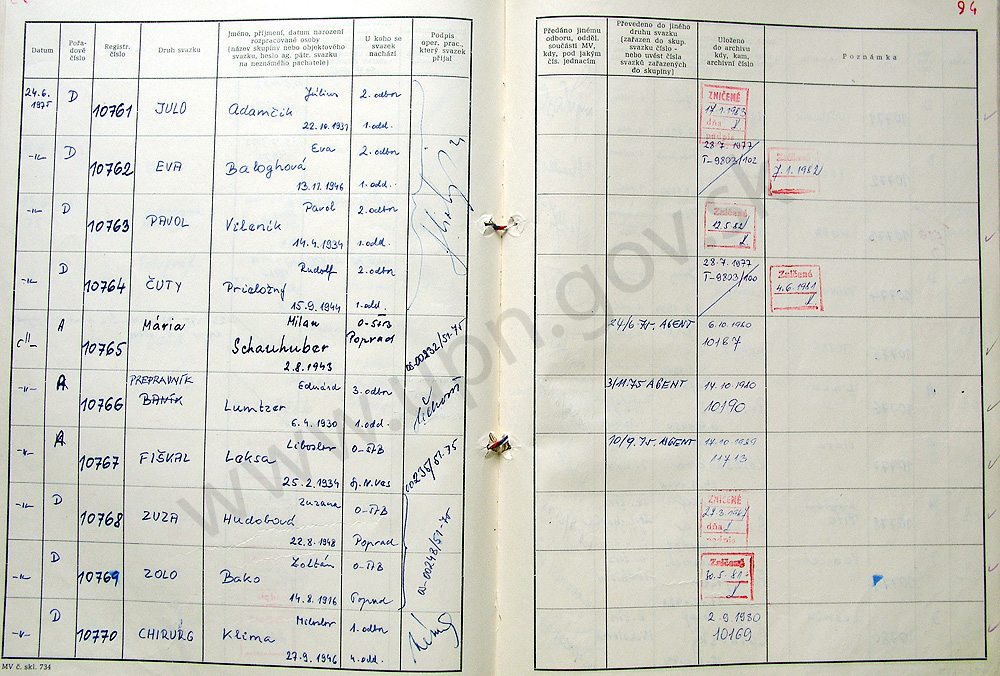 94
Datum
Pořa-
dové
číslo
Registr.
číslo
Druh svazku
Jméno, příjmení, datum narození
rozpracované osoby
(název skupiny nebo objektového
svazku, heslo ag. pátr. svazku
na neznámého pachatele)
U koho se
svazek
nachází
Podpis
oper. prac.,
který svazek
přijal
Předáno jinému
odboru, odděl.
součásti MV,
kdy, pod jakým
čís. jednacím
Převedeno do jiného
druhu svazku
(zařazen do skup.
svazku číslo -
nebo uvést čísla
svazků zařazených
do skupiny)
Uloženo
do archivu
kdy, kam,
archivní číslo
Poznámka
24.6.
1975 D 10761 JULO Július
Adamčík
22.10.1931
2. odbor
1. odd.
ZNIČENÉ
17.1.1983
dňa
podpis
-"- D 10762 EVA Eva
Baloghová
13.11.1946
2. odbor
1. odd.
28.7.1977
T-9803/102
Zničené
7.1.1982
-"- D 10763 PAVOL Pavol
14.4.1934
2. odbor
1. odd.
Zničené
12.5.82
-"- D 10764 ČUTY Rudolf
Prieložný
15.9.1944
2. odbor
1. odd.
28.7.1977
T-9803/100
Zničené
4.6.1981
-"- A 10765 Mária Milan
Schauhuber
2.8.1943
O-ŠTB
Poprad
00-00232/51-75
24/6 75. AGENT
6.10.1980
10187
-"- A 10766 PREPRAVNÍK
BANÍK
Eduard
Lumtzer
6.4.1930
3. odbor
1. odd.
3/11.75 AGENT
14.10.1980
10190
-"- A 10767 FIŠKAL Liboslav
Leksa
25.2.1934
O-ŠTB
Sp.N.Ves
00236/51-75
10/9.75. AGENT
17.10.1989
11713
-"- D 10768 ZUZA Zuzana
Hudobová
22.8.1948
O-ŠTB
Poprad
00-00248/51-75
ZNIČENÉ
dňa
podpis
-"- D 10769 ZOLO Zoltán
Bako
14.8.1916
O-ŠTB
Poprad
Zničené
-"- D 10770 CHIRURG Miloslav
Klima
27.9.1946
1. odbor
4. odd.
2.9.1980
10169
MV č. skl. 734
www.upn.gov.sk